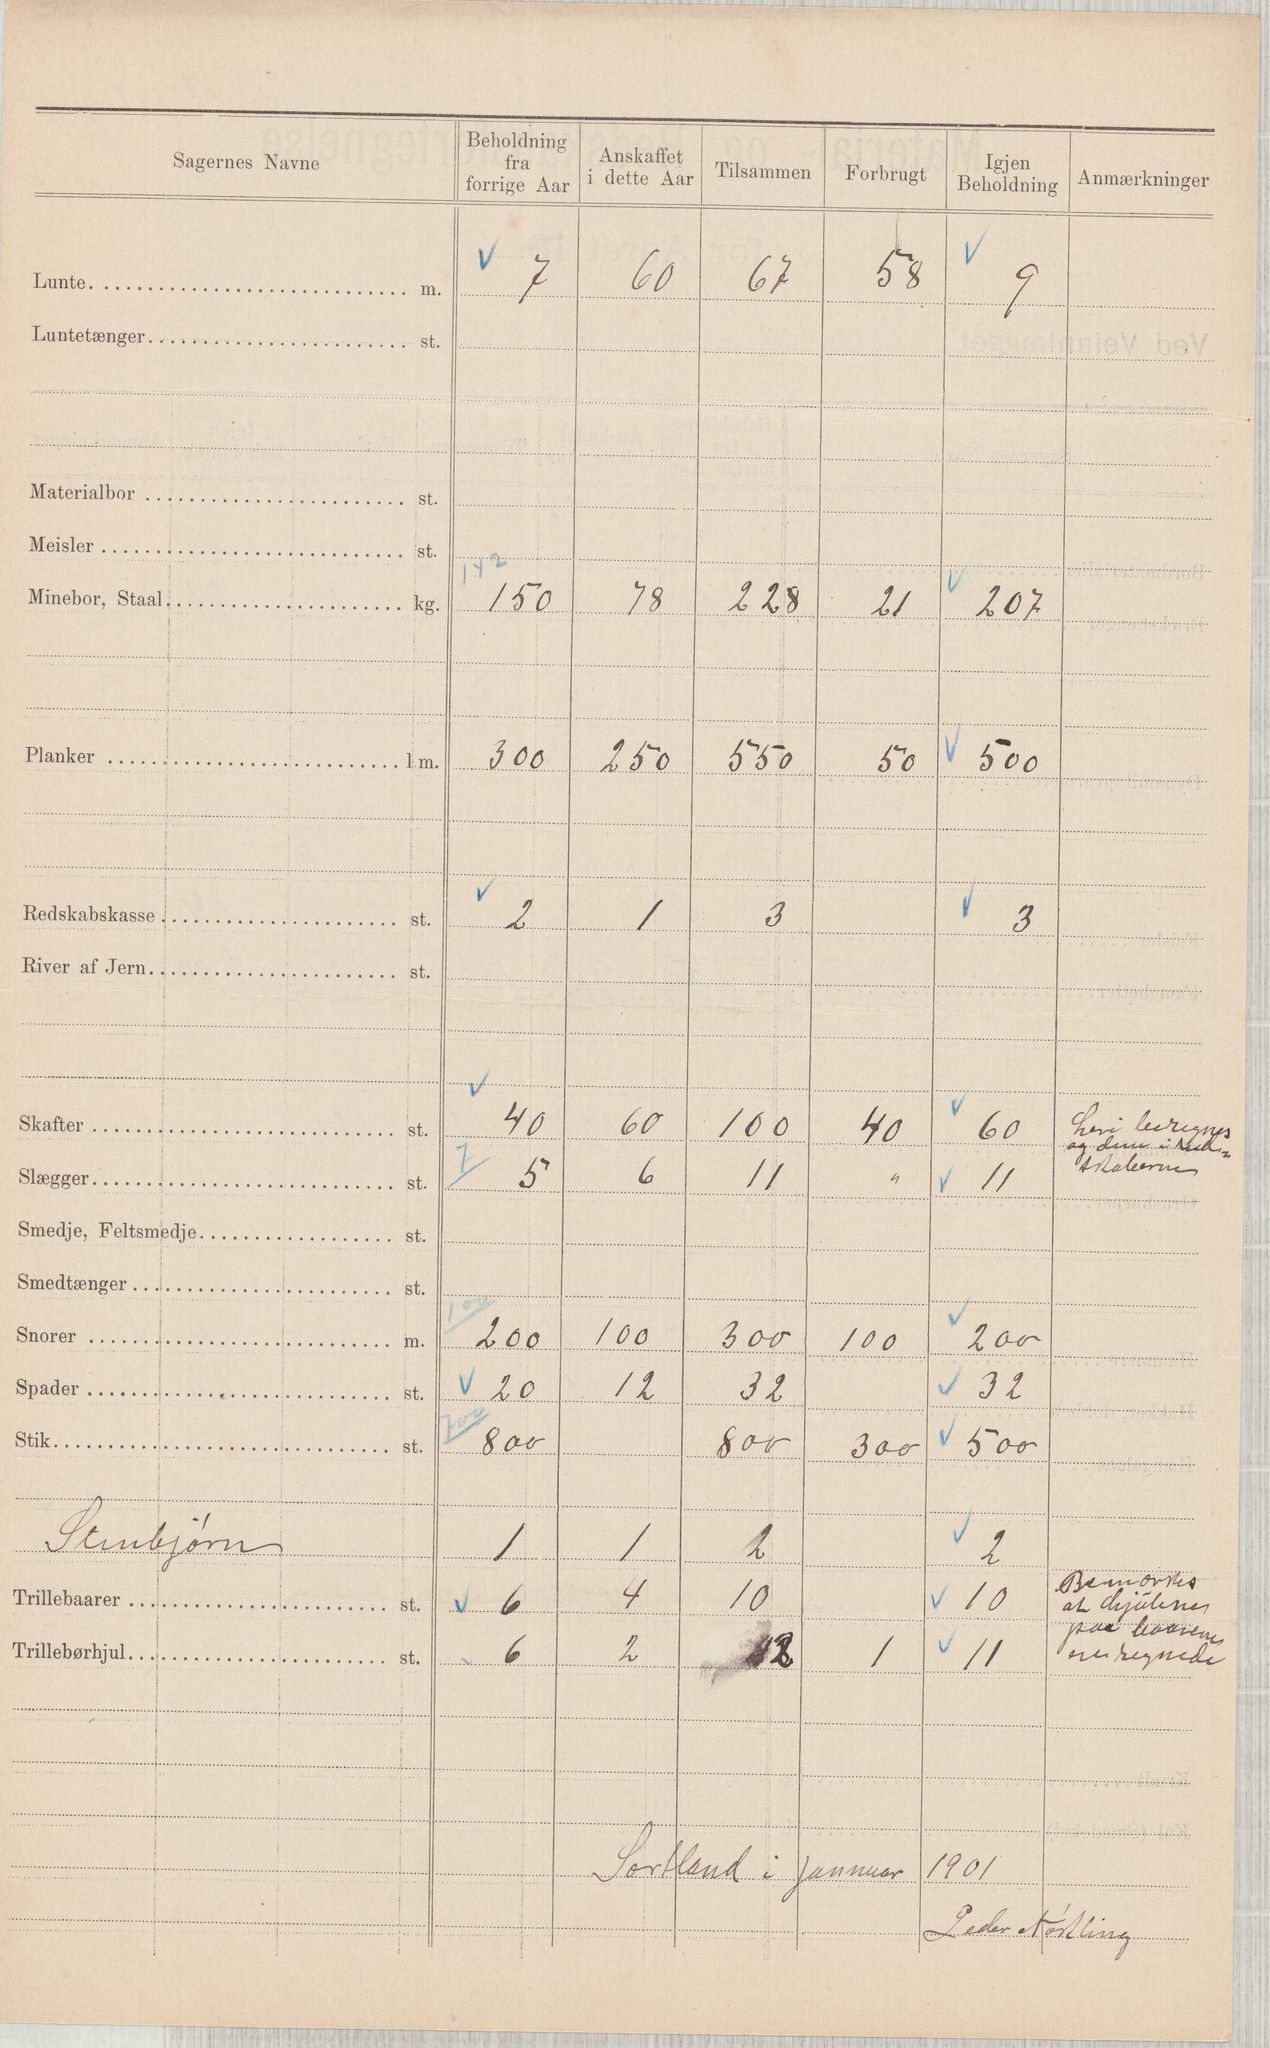 Sagernes Navne | Beholdning fra forrige Aar | Anskaffet i dette Aar | Tilsammen | Forbrugt | Igjen Beholdning | Anmærkninger
Lunte m. | 7 | 60 | 67 | 58 | 9
Luntetænger st.
Materialbor st.
Meisler st.
142
Minebor, Staal kg. | 150 | 78 | 228 | 21 | 207
Planker l m. | 300 | 250 | 550 | 50 | 500
Redskabskasse st. | 2 | 1 | 3 | | 3
River af Jern st.
Skafter st. | 40 | 60 | 100 | 40 | 60 | heri beregnes
og dem i Red-
skaberne
7
Slægger st. | 5 | 6 | 11 | " | 11
Smedje, Feltsmedje st.
Smedtænger st.
100
Snorer m. | 200 | 100 | 300 | 100 | 200
Spader st. | 20 | 12 | 32 | | 32
700
Stik st. | 800 | | 800 | 300 | 500
Stenbjørn | 1 | 1 | 2 | | 2
Trillebaarer st. | 6 | 4 | 10 | | 10 | Bemærkes
at hjulene
paa baarene
er regnede
Trillebørhjul st. | 6 | 2 | 12 | 1 | 11
Sortland i januar 1901
Peder Nøstling